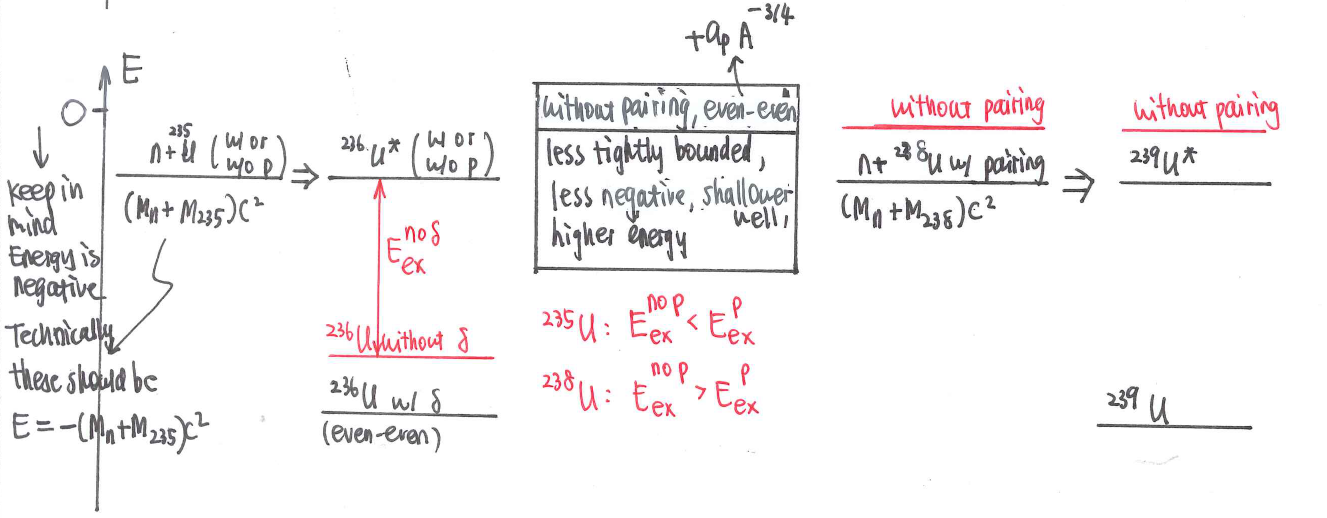 E
0
keep in
mind
Energy is
negative
Technically
these should be
E = -(Mn+M235)C²
n+ ²³⁵U (w/ or
w/o p)
(Mn+M235)C²
⇒
²³⁶U* (w/ or
w/o p)
E ex no δ
²³⁶U without δ
²³⁶U w/ δ
(even-even)
+ap A^-3/4
without pairing, even-even
less tightly bounded,
less negative, shallower
well,
higher energy
²³⁵U: E ex no p < E ex p
²³⁸U: E ex no p > E ex p
without pairing
n+ ²³⁸U w/ pairing
(Mn+M238)C²
⇒
without pairing
²³⁹U*
²³⁹U